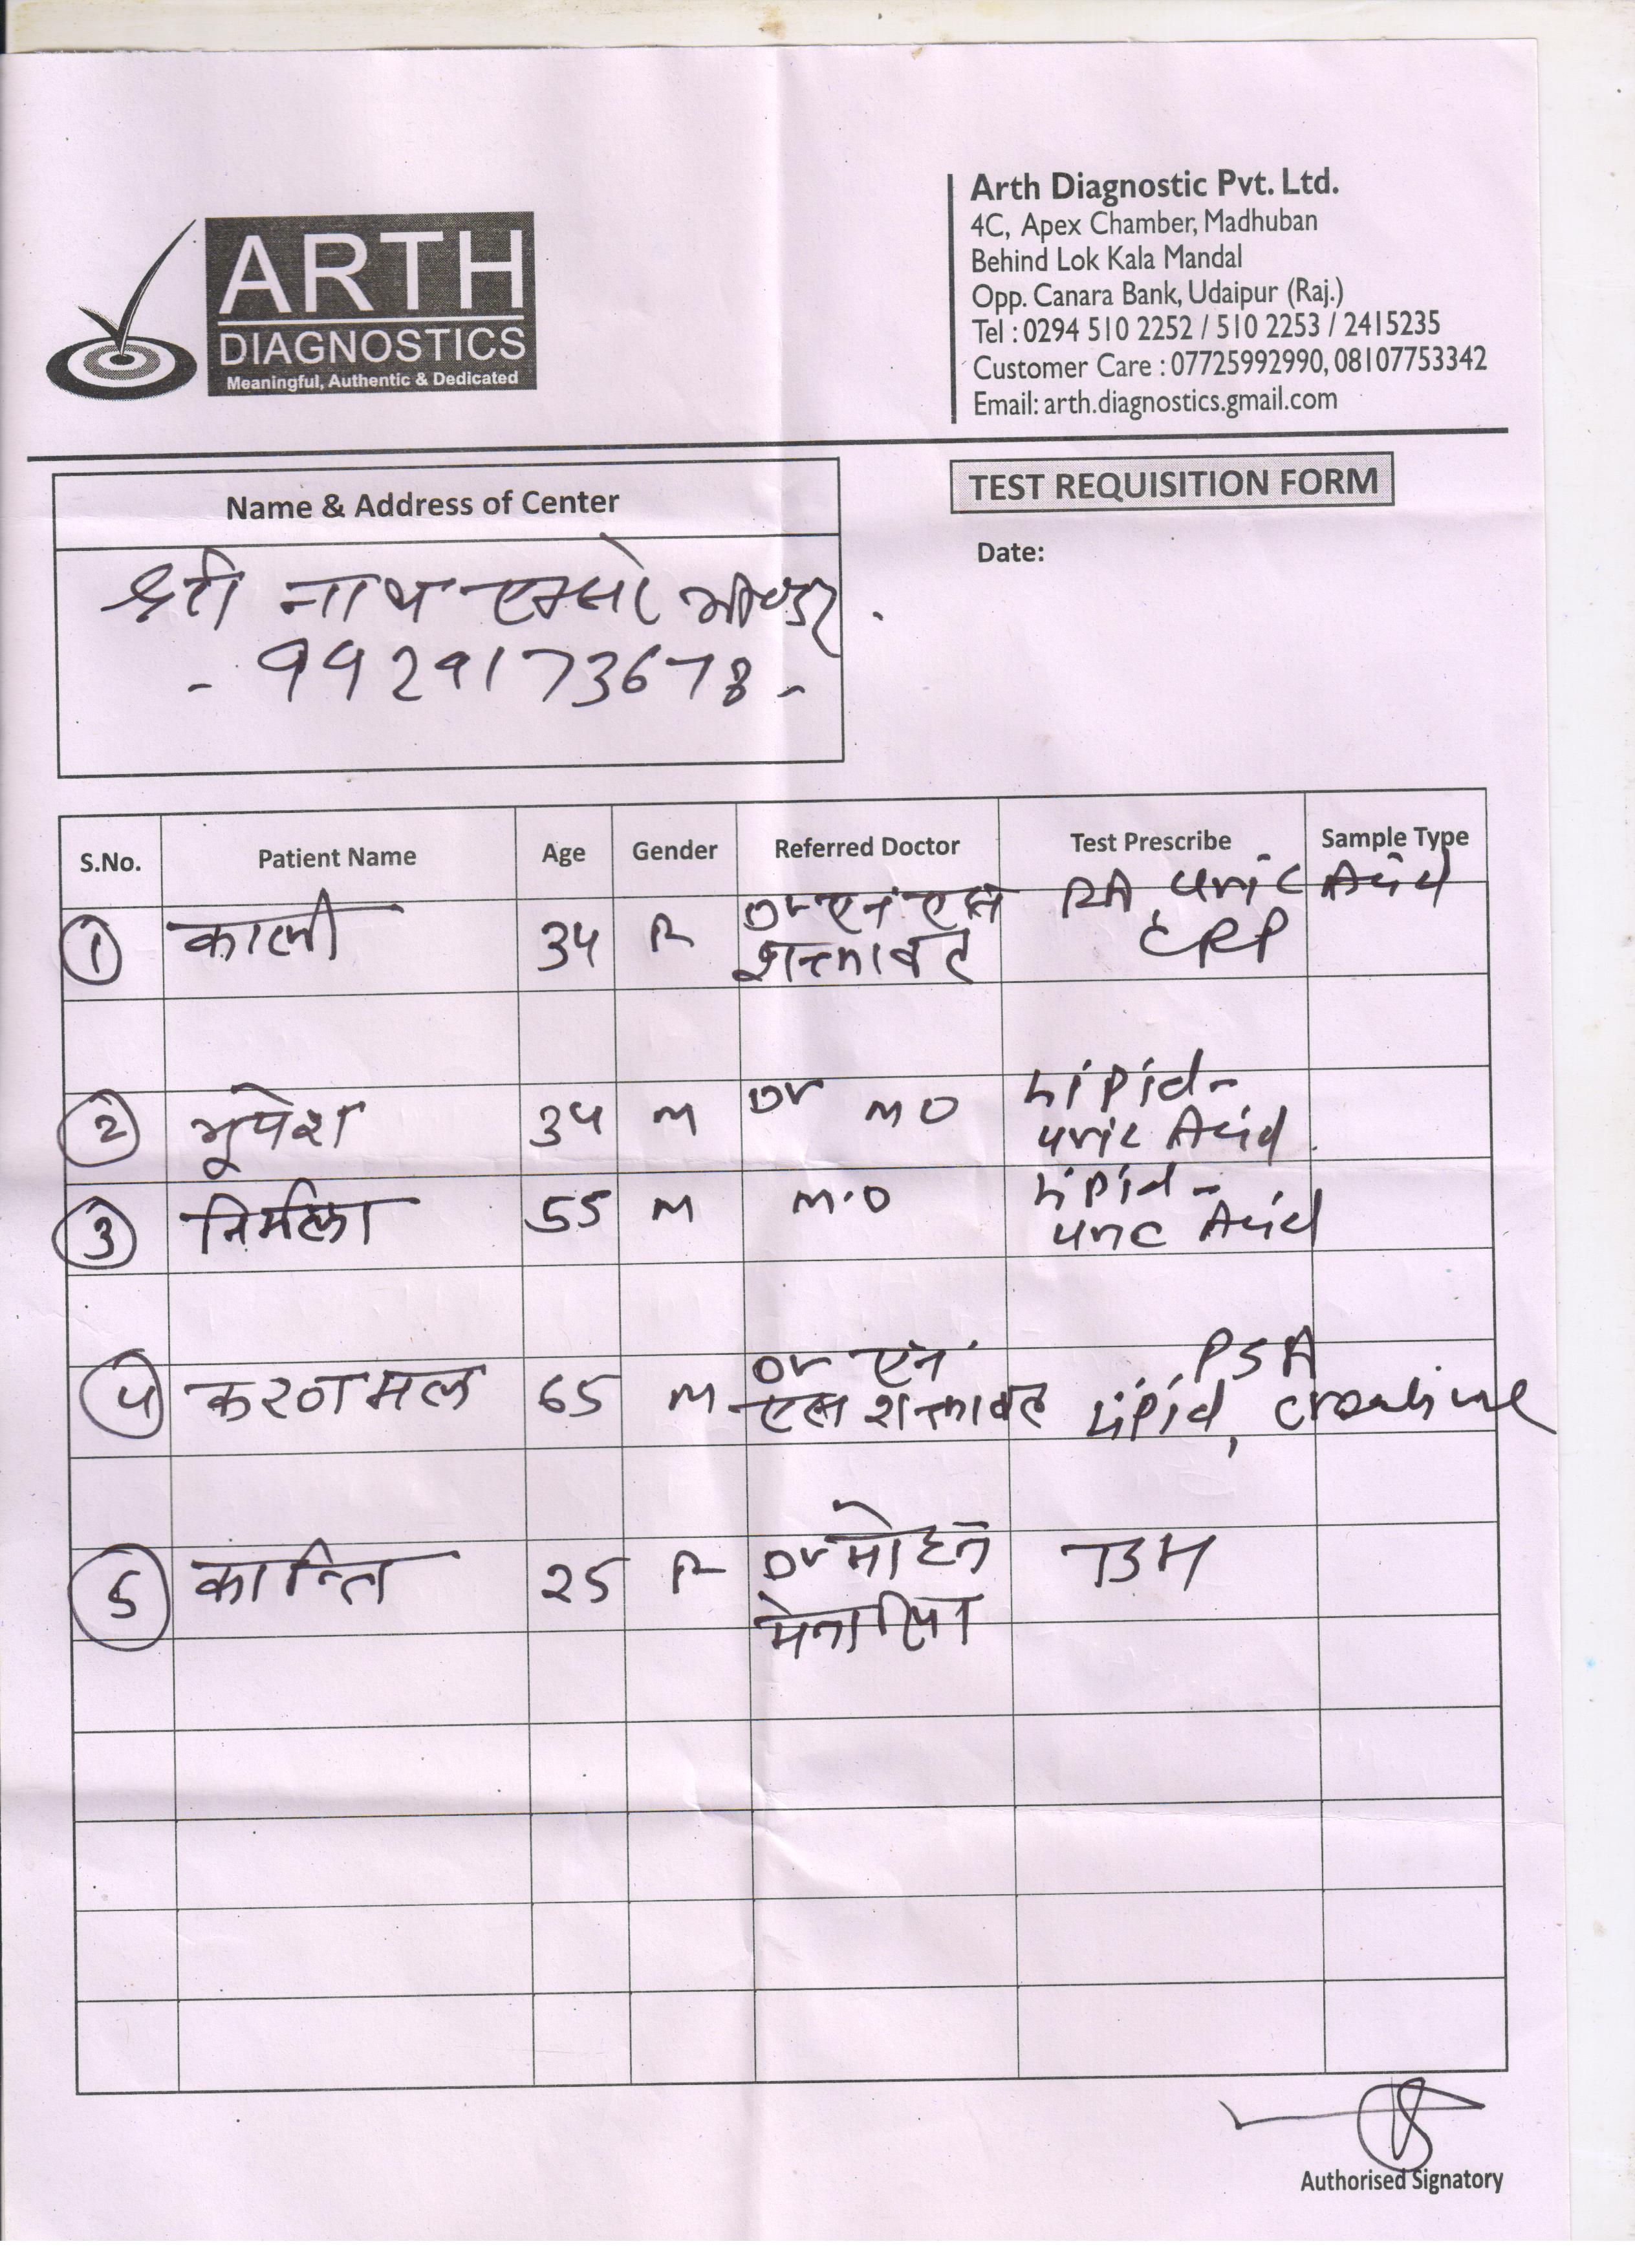 ARTH
DIAGNOSTICS
Meaningful, Authentic & Dedicated
Arth Diagnostic Pvt. Ltd.
4C, Apex Chamber, Madhuban
Behind Lok Kala Mandal
Opp. Canara Bank, Udaipur (Raj.)
Tel : 0294 510 2252 / 510 2253 / 2415235
Customer Care : 07725992990, 08107753342
Email: arth.diagnostics.gmail.com
Name & Address of Center
TEST REQUISITION FORM
Date:
श्री नाथ
- 9929173678 -
S.No. Patient Name Age Gender Referred Doctor Test Prescribe Sample Type
1 काली 34 F Dr एन एस RA, uric Acid
शक्तावत CRP
2 भूपेश 34 M Dr MO Lipid -
uric Acid
3 निर्मला 55 M M.O Lipid -
uric Acid
4 करणमल 65 M Dr एन PSA
एस शक्तावत Lipid,
5 कान्ति 25 F Dr मोहन
मेनारिया
Authorised Signatory